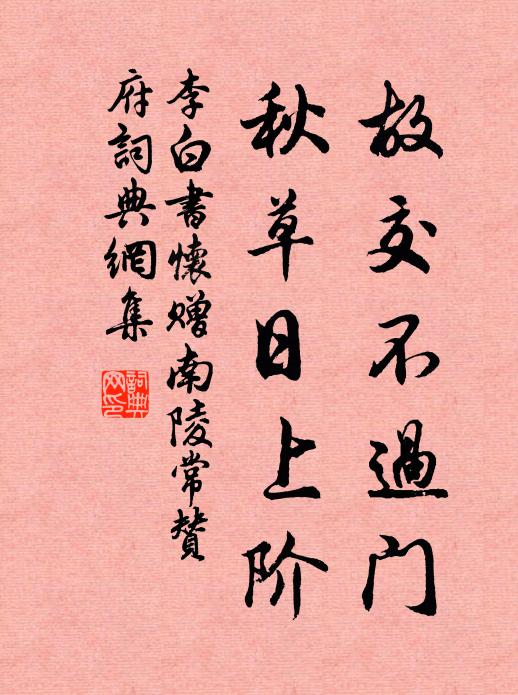 故交不過门
秋草日上阶
李白書懷赠南陵常贊
府詞典網集
詞典
网印